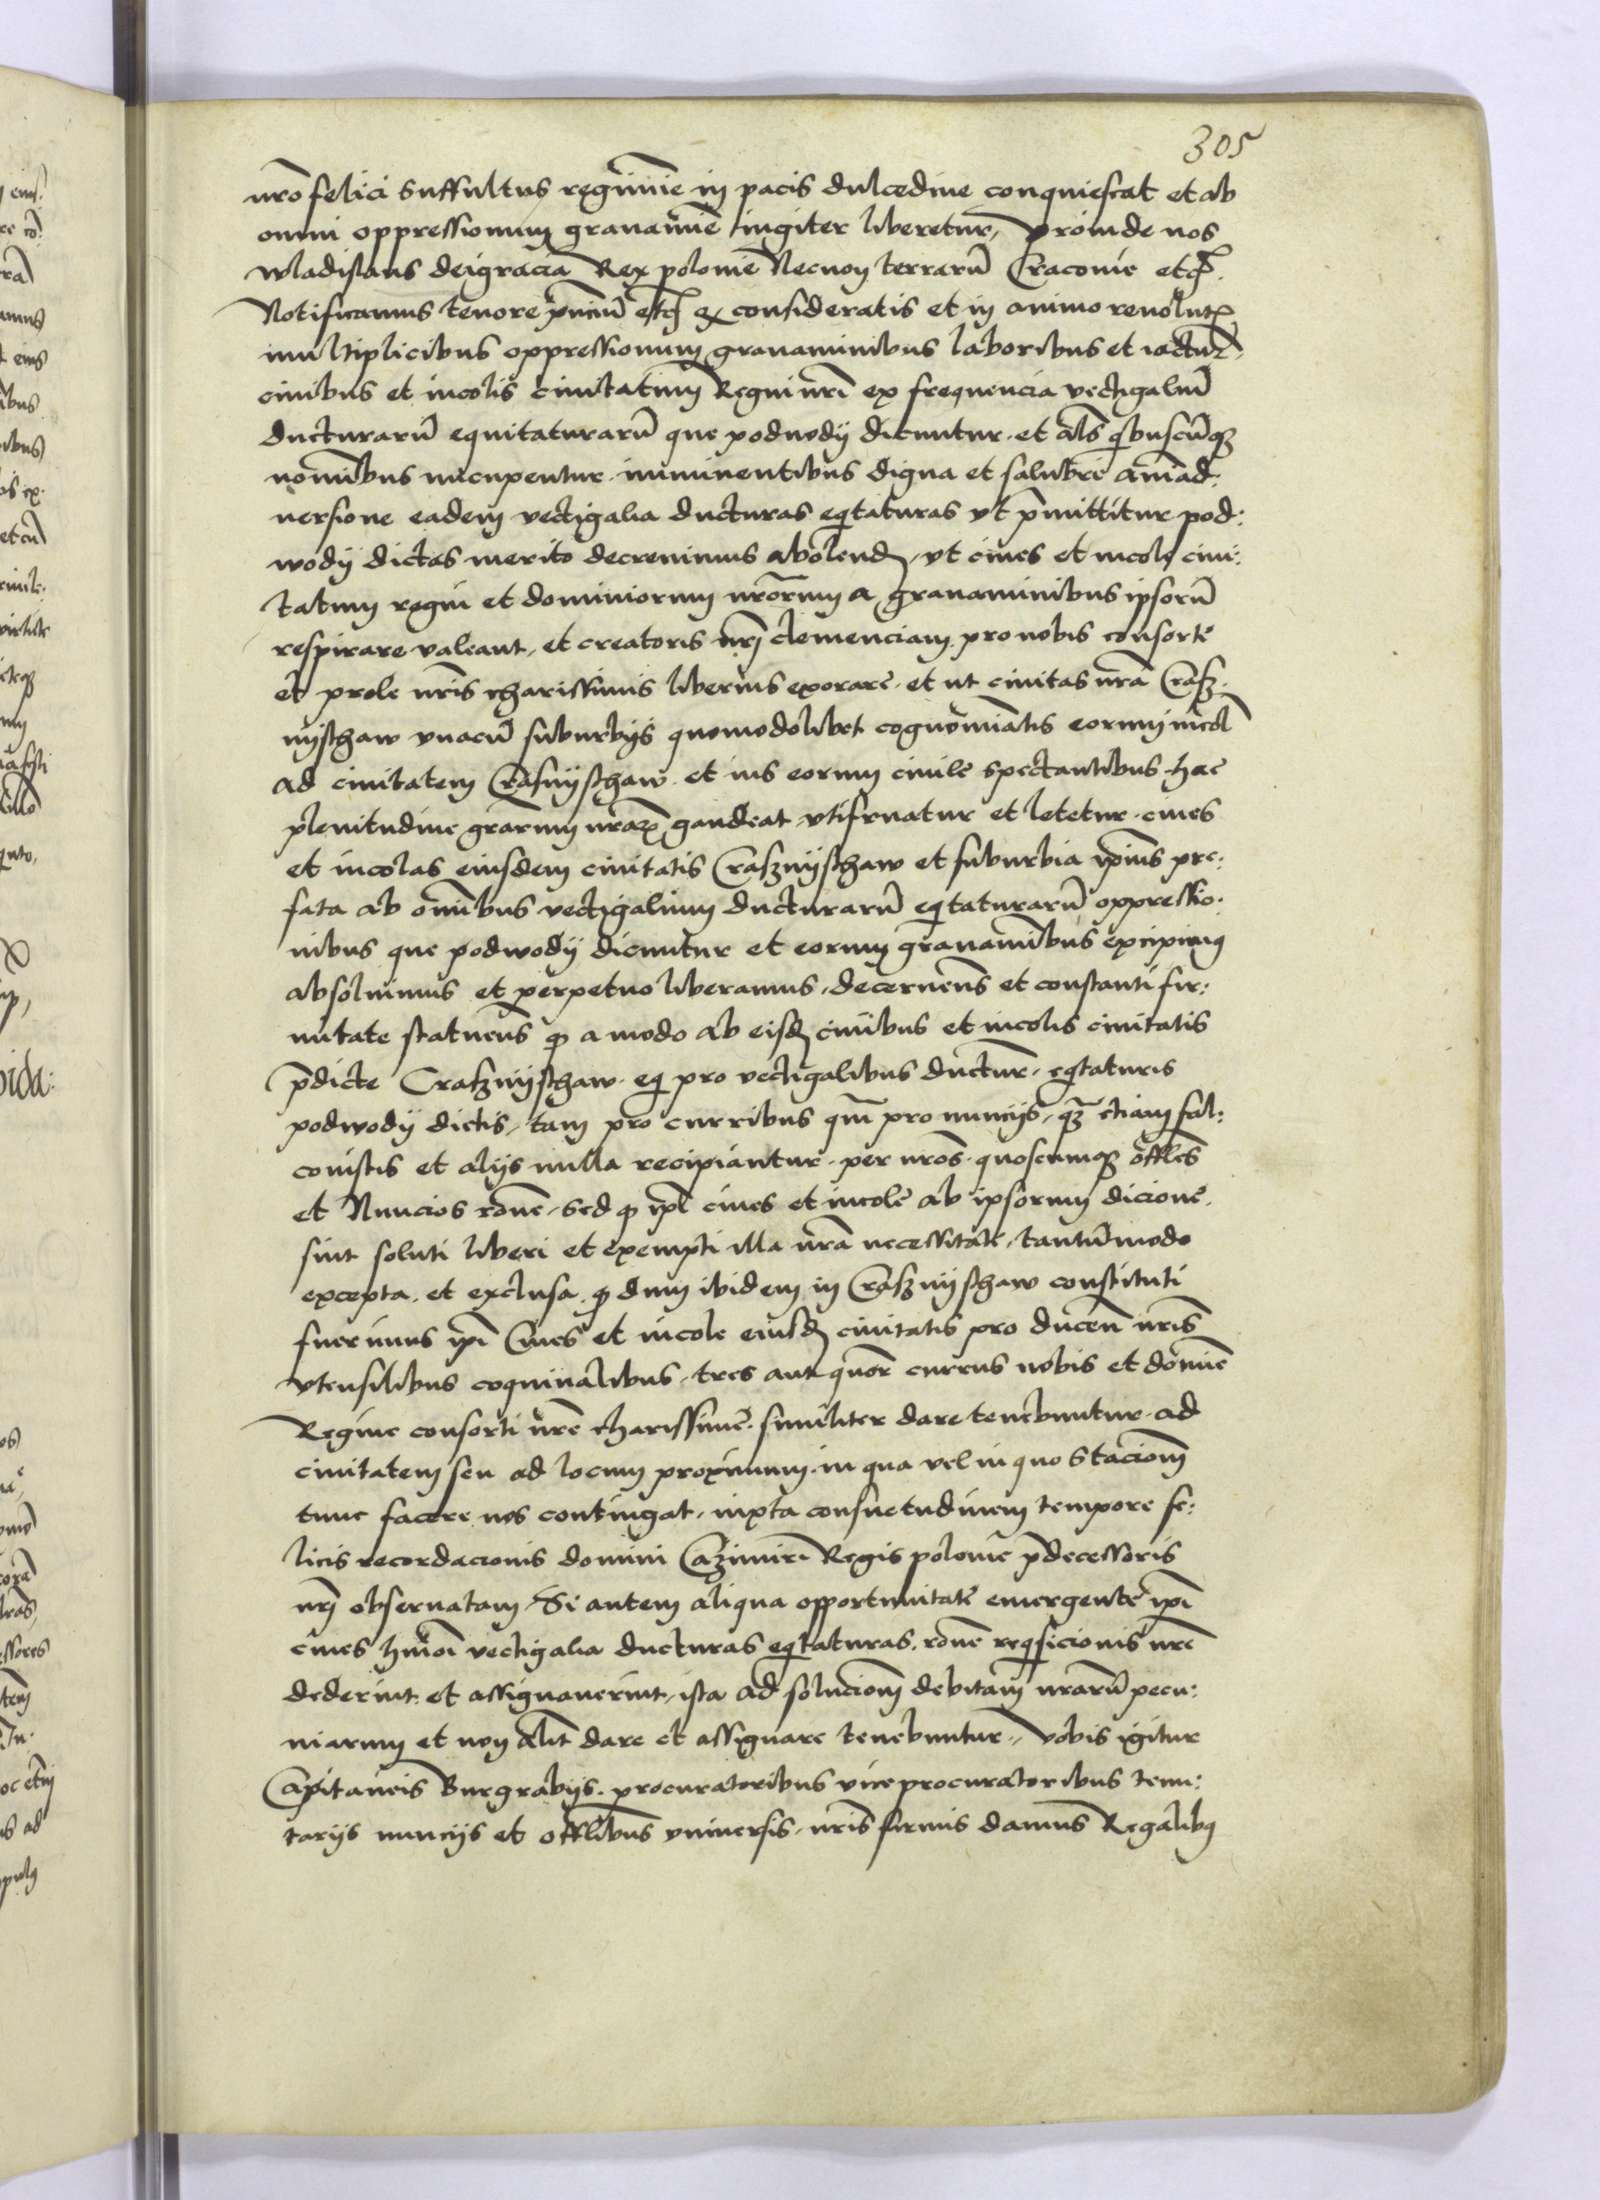 305
nrō felici suffultus regimine in pacis dulcedine conquiescat et ab
omni oppressionum grauamine iugiter liberetur, Proinde nos
wladislaus deigracia Rex polonie Necnon terrarū Craconie etc̄.
Notificamus tenore pn̄ciū etc̄ q̄ consideratis et in animo reuolut
multiplicibus oppressionum grauaminibus laboribus et iactur
ciuibus et incolis ciuitatum Regni nrī ex frequencia vectigaliū
ducturarū equitaturarū que podwodÿ dicuntur. et als̄ qͥbuscūqꝫ
nomībus nucupentur. imminentibus digna et salubri amad:
uersione eadem vectigalia ducturas eqͥtaturas vt p̄mittitur pod:
wodÿ dictas merito decreuimus abolend, vt ciues et incole ciui:
tatum regni et dominiorum nrōrum a grauaminibus ipsorū
respirare valeant, et creatoris nrī clemenciam pro nobis consorte
et prole nrīs charissimis liberius exorare. et ut ciuitas nrā Crasz-
nÿsthaw vnacū suburbÿs quomodolibet cognōmiatis eorum incol
ad ciuitatem Crasnÿsthaw. et ius eorum ciuile spectantibus. hac
plenitudine grārum nrāꝝ gaudeat vtifruatur et letetur. ciues
et incolas eiusdem ciuitatis Crasznÿsthaw et suburbia ipīus pre:
fata ab omībus vectigalium ducturarū eqͥtaturarū oppressio:
nibus que podwodÿ dicuntur et eorum grauamībus excipimꝰ
absoluimus et perpetuo liberamus, decernens̄ et constanti fir:
mitate statuens̄ ꝙ a modo ab eisd ciuibus et incolis ciuitatis
p̄dicte Crasznÿsthaw. eqͥ pro vectigalibus ductur̄. eqͥtaturis
podwodÿ dictis, tam pro curribus qm̄ pro nuncÿs, qꝫ etiam fal:
conistis et alÿs nulla recipiantur. per nrōs. quoscumqꝫ offles̄
et Nuncios rōne. sed ꝙ ipī ciues et incole ab ipsorum dicione.
sint soluti liberi et exempti illa nrā necessitate, tantūmodo
excepta. et exclusa. ꝙ dum ibidem in Crasznÿsthaw constituti
fuerimus ipī Ciues et incole eiusd ciuitatis pro ducen̄ nrīs
vtensilibus coquinalibus. tres aut quor̄ currus nobis et domine
Regine consorti nrē charissime. similiter dare tenebuntur. ad
ciuitatem seu ad locum proximum. in qua vel in quo Stacionē
tunc facere nos contingat. iuxta consuetudinem tempore fe:
licis recordacionis domini Cazimiri Regis polonie p̄decessoris
nrī obseruatam. Si autem aliqua opportunitate emergente ipī
ciues hmōi vectigalia ducturas eqͥtaturas. rōne reqͥsicionis nrē
dederint. et assignauerint, ista ad solucionē debitam nrārū pecu:
niarum et non alit̄ dare et assignare tenebuntur,, Vobis igitur
Capitaneis Burgrabÿs. procuratoribus viceprocuratoribus tenu:
tarÿs nuncÿs et offlibus vniuersis. nrīs firmis damus Regalibꝰ